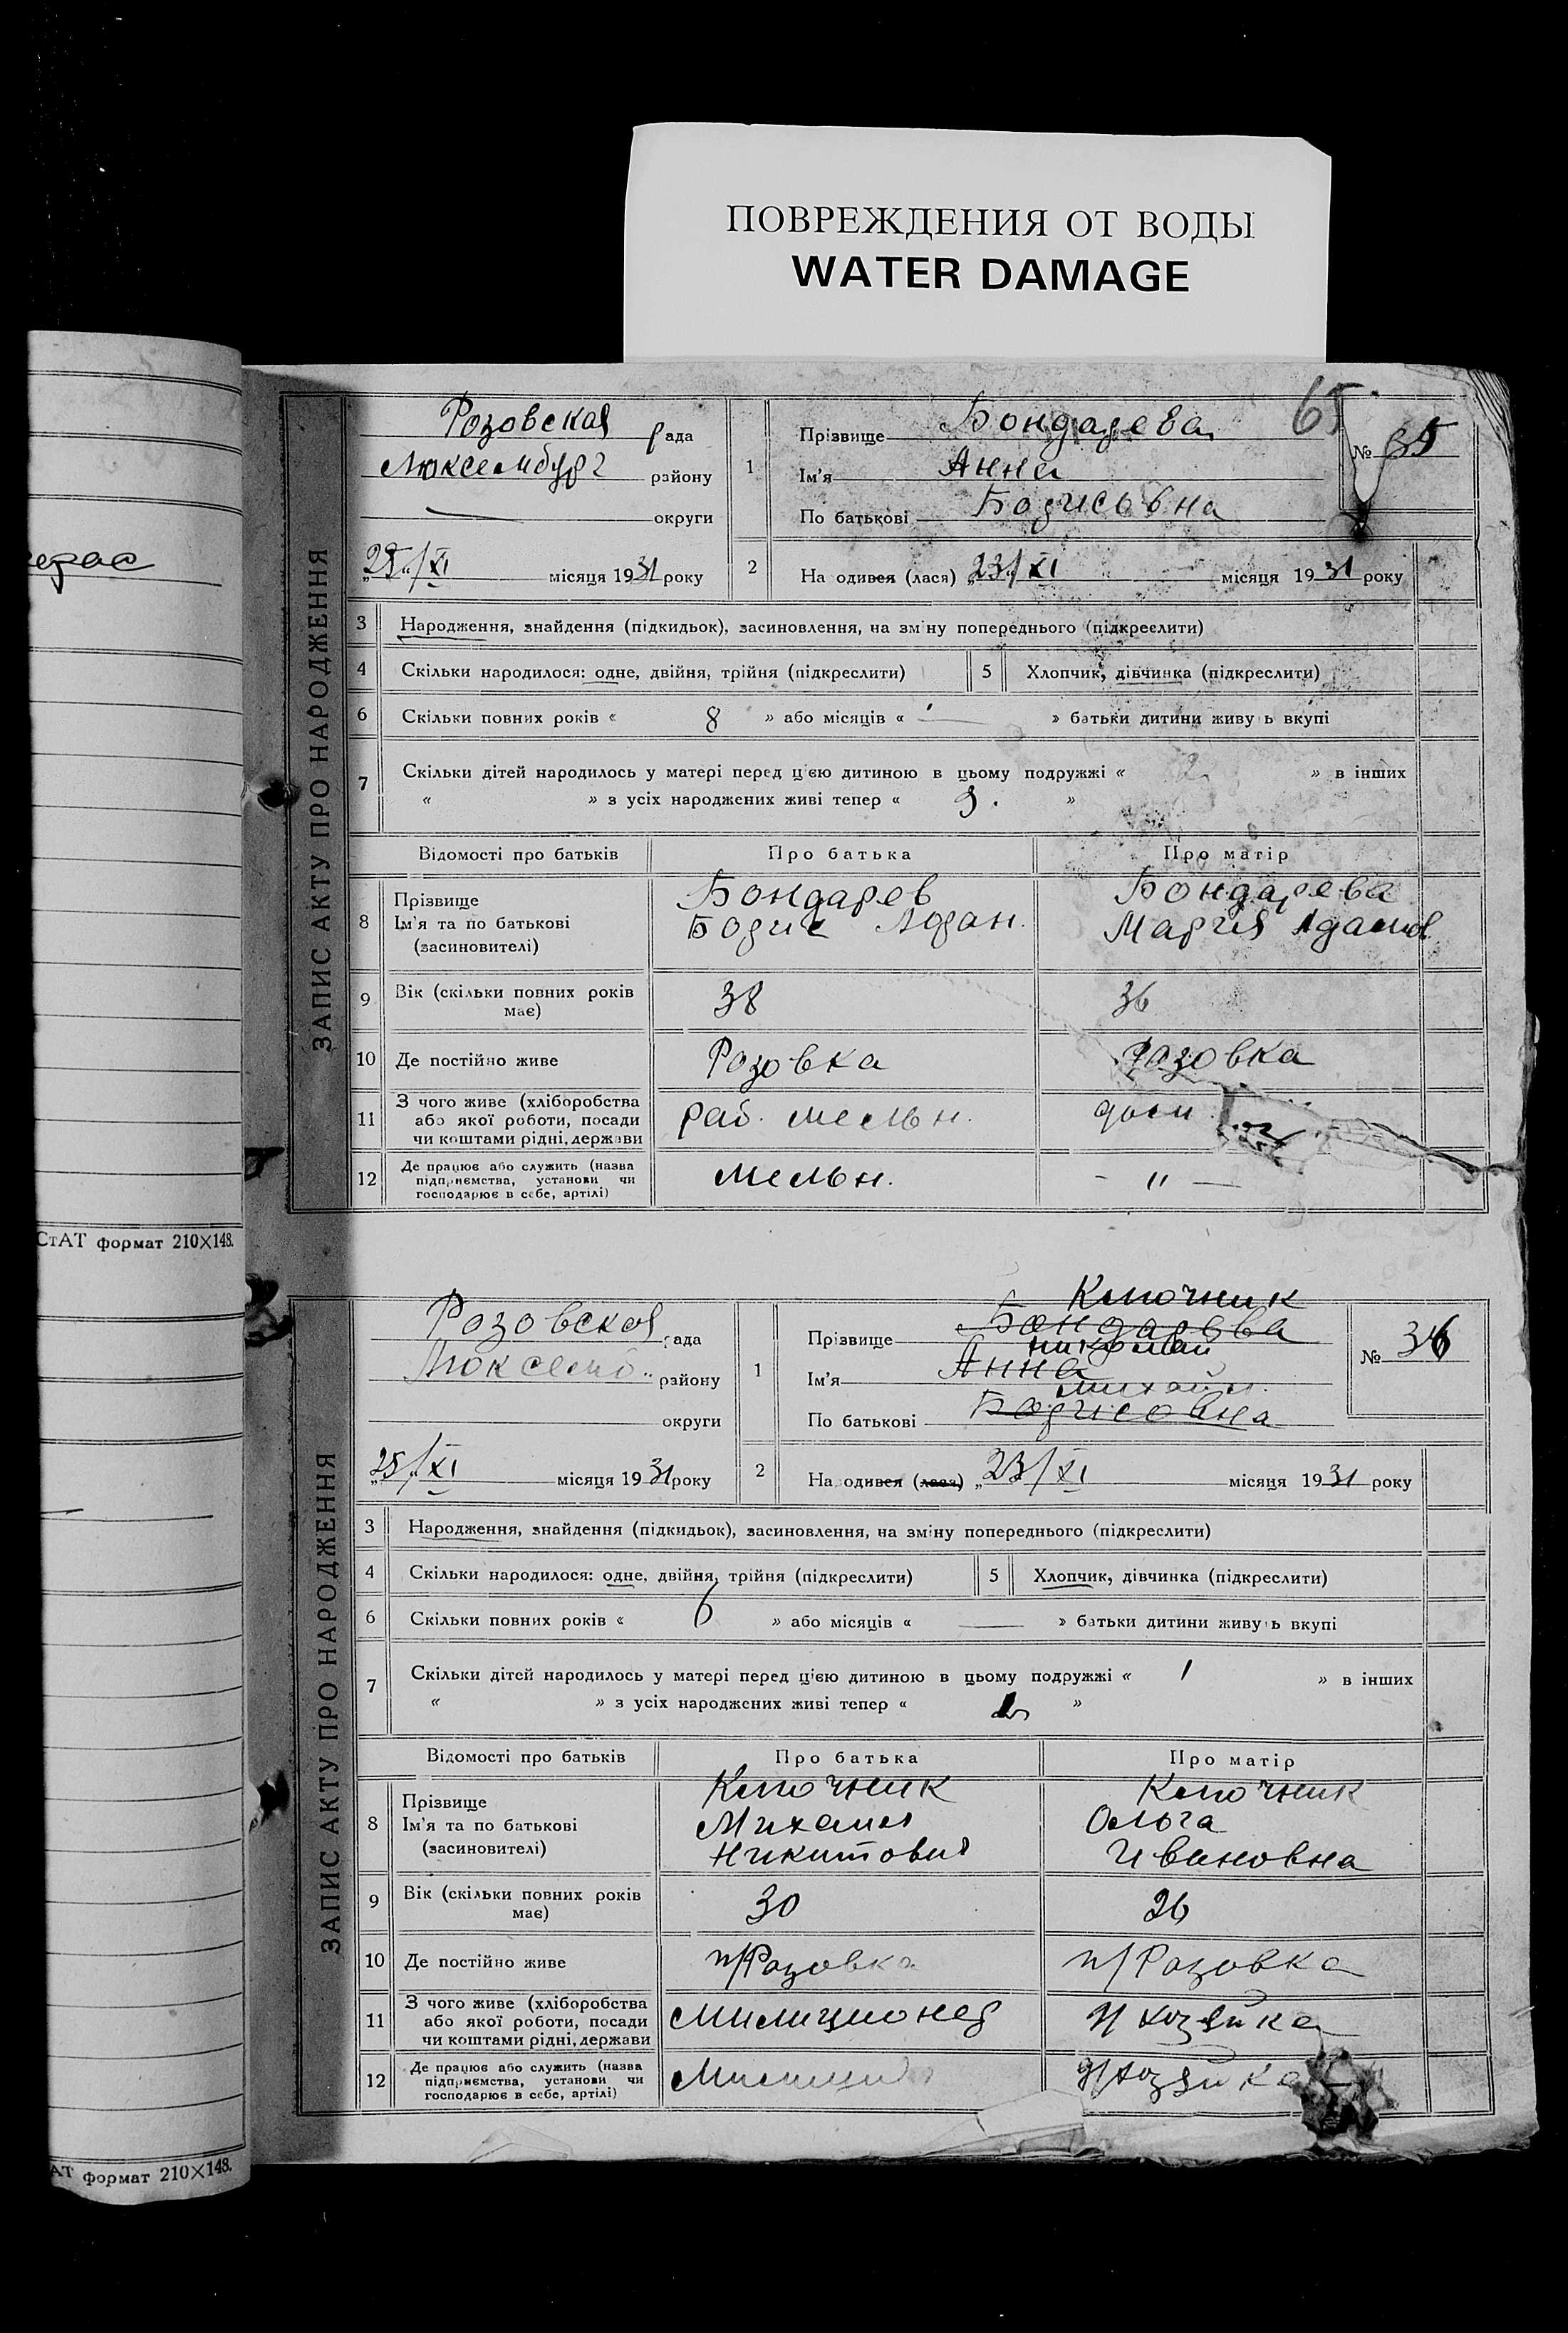 ПОВРЕЖДЕНИЯ ОТ ВОДЫ
WATER DAMAGE
СтАТ формат 210×148.
АТ формат 210×148.
ЗАПИС АКТУ ПРО НАРОДЖЕННЯ
65
Розовская рада
Люксембург району
округи
„25“/XI місяця 1931 року
1 Прізвище Бондарева
Ім'я Анна
По батькові Борисовна
№ 35
2 На одився (лася) „23“/XI місяця 1931 року
3 Народження, знайдення (підкидьок), засиновлення, на зміну попереднього (підкреслити)
4 Скільки народилося: одне, двійня, трійня (підкреслити) 5 Хлопчик, дівчинка (підкреслити)
6 Скільки повних років « 8 » або місяців « — » батьки дитини живу ь вкупі
7 Скільки дітей народилось у матері перед цією дитиною в цьому подружжі « 2 » в інших
« » з усіх народжених живі тепер « 3. »
Відомості про батьків Про батька Про матір
8 Прізвище Бондарев Бондарева
Ім'я та по батькові Борис Мария Адамов.
(засиновителі)
9 Вік (скільки повних років має) 38 36
10 Де постійно живе Розовка Розовка
11 З чого живе (хліборобства або якої роботи, посади чи коштами рідні, держави раб. мельн. дом.
12 Де працює або служить (назва підприємства, установи чи господарює в себе, артілі) мельн. - " -
ЗАПИС АКТУ ПРО НАРОДЖЕННЯ
Розовская рада
Люксемб.. району
округи
„25“/XI місяця 1931 року
Ключник
1 Прізвище Бондарева
Николай
Ім'я Анна
Михайл.
По батькові Борисовна
№ 36
2 На одився (лася) „23/XI місяця 1931 року
3 Народження, знайдення (підкидьок), засиновлення, на зміну попереднього (підкреслити)
4 Скільки народилося: одне, двійня, трійня (підкреслити) 5 Хлопчик, дівчинка (підкреслити)
6 Скільки повних років « 6 » або місяців « — » батьки дитини живу ь вкупі
7 Скільки дітей народилось у матері перед цією дитиною в цьому подружжі « 1 » в інших
« » з усіх народжених живі тепер « 2 »
Відомості про батьків Про батька Про матір
8 Прізвище Ключник Ключник
Ім'я та по батькові Михаил Ольга
(засиновителі) Никитович Ивановна
9 Вік (скільки повних років має) 30 26
10 Де постійно живе п/Розовка п/Розовка
11 З чого живе (хліборобства або якої роботи, посади чи коштами рідні, держави милиционер д/хозяйка
12 Де працює або служить (назва підприємства, установи чи господарює в себе, артілі) д/хозяйка